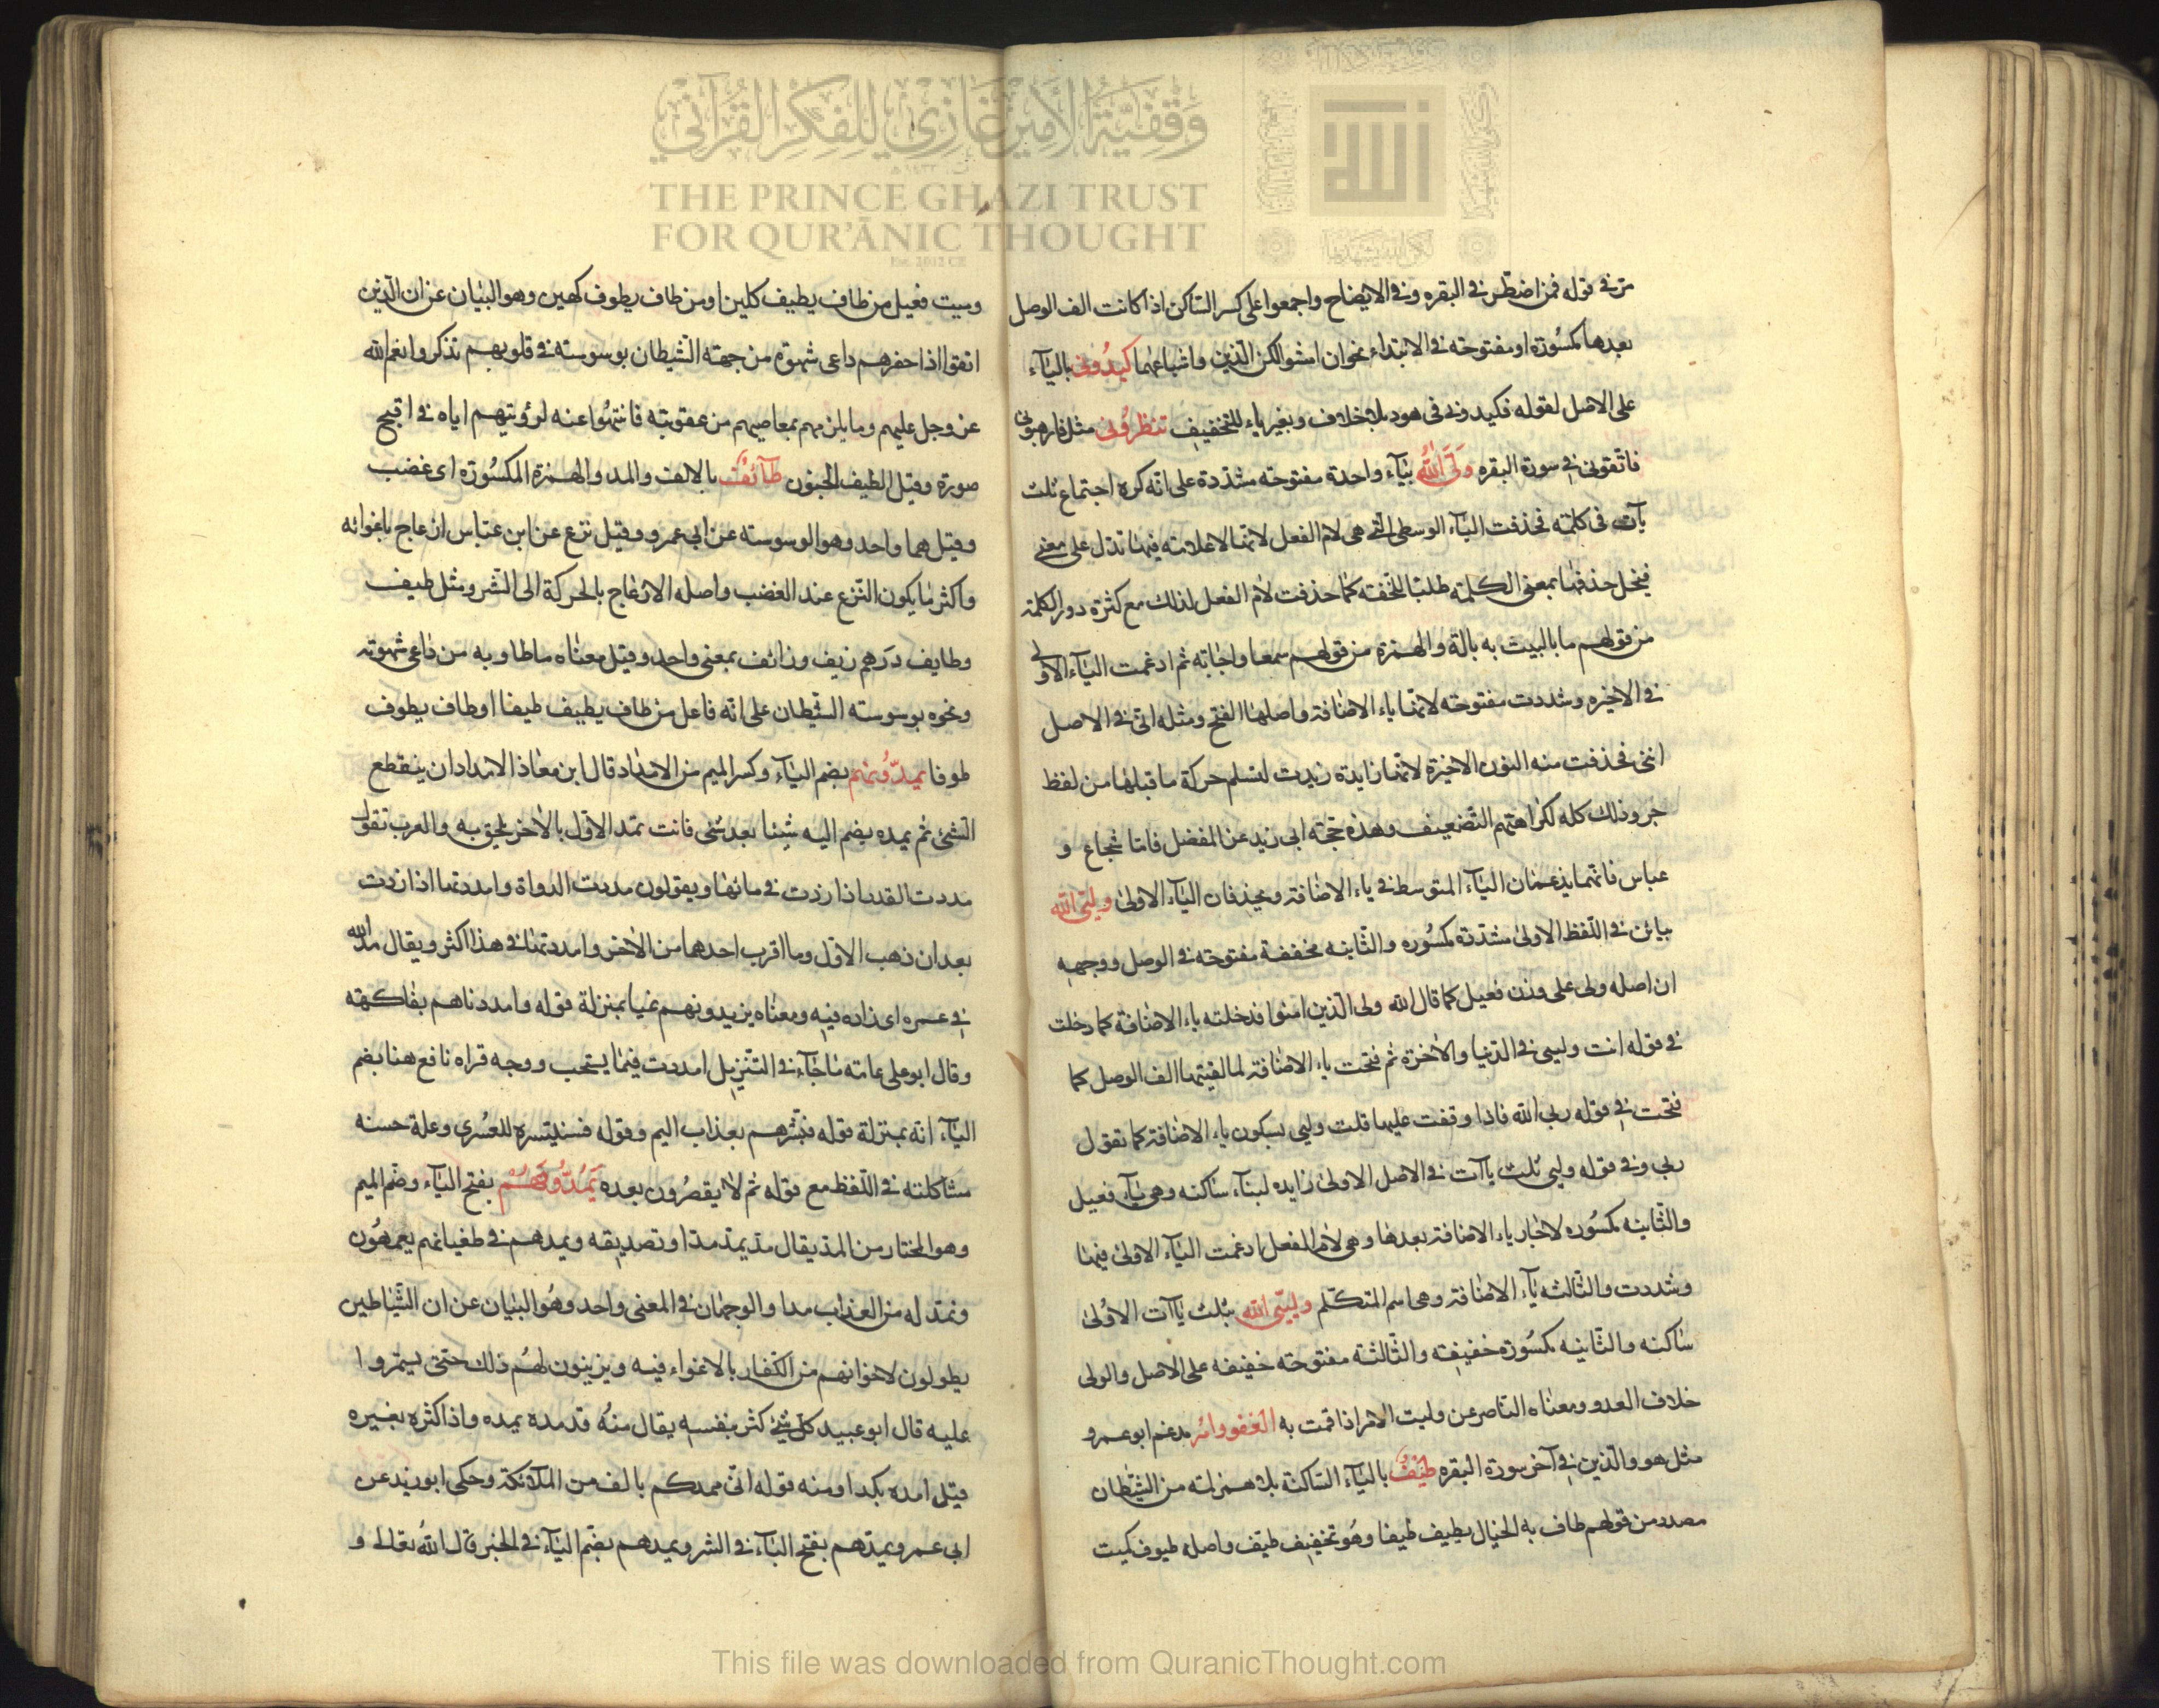 وقفية الأمير غازي للفكر القرآني
THE PRINCE GHAZI TRUST
FOR QUR'ĀNIC THOUGHT
Est. 2012 CE
مرّ في قوله فمن اضطر في البقره وفي الايضاح واجمعوا على كسر الساكن اذا كانت الف الوصل
بعدها مكسورة او مفتوحة في الابتداء نحو ان امشوا لكن الذين واشباههما كيدوني بالياء
على الاصل لقوله فكيدوني في هود بلا خلاف وبغير ياء للتخفيف تنظروني مثل فارهبوني
فاتقوني في سورة البقره ولي الله بياء واحدة مفتوحة مشددة على انه كره اجتماع ثلث
يآت في كلمة فحذفت الياء الوسطى التي هي لام الفعل لانها لا علامة فيها تدل على معنى
فيخل حذفها بمعنى الكلمة طلبا للخفة كما حذفت لام الفعل لذلك مع كثرة دور الكلمة
من قولهم ما باليت به بالة والهمزة من قولهم سمعا واجابة ثم ادغمت الياء الاولى
في الاخيره وشددت مفتوحة لانها ياء الاضافة واصلها الفتح ومثله اني في الاصل
انني فحذفت منه النون الاخيرة لانها زايدة زيدت لتسلم حركة ما قبلها من لفظ
جر وذلك كله لكراهتهم التضعيف وهذه حجة ابي زيد عن المفضل فاما شجاع و
عباس فانهما يدغمان الياء المتوسط في ياء الاضافة ويحذفان الياء الاولى وليي الله
بيائن في اللفظ الاولى مشددة مكسوره والثانيه مخففة مفتوحة في الوصل ووجهه
ان اصله ولي على وزن فعيل كما قال الله ولي الذين امنوا فدخلته ياء الاضافة كما دخلت
في قوله انت وليي في الدنيا والاخرة ثم فتحت ياء الاضافة لما لقيتها الف الوصل كما
فتحت في قوله ربي الله فاذا وقفت عليها قلت وليي بسكون ياء الاضافة كما تقول
ربي وفي قوله وليي ثلث ياآت في الاصل الاولى زايده لبناء ساكنه وهي ياء فعيل
والثانيه مكسوره لاجل ياء الاضافة بعدها وهي لام الفعل ادغمت الياء الاولى فيها
وشددت والثالثه ياء الاضافة وهي اسم المتكلم وليي الله بثلث ياآت الاولى
ساكنه والثانيه مكسورة خفيفة والثالثة مفتوحة خفيفه على الاصل والولي
خلاف العدو ومعناه الناصر عن وليت الامر اذا قمت به العفو وامر مدغم ابو عمرو
مثل هو والذين في آخر سورة البقره طيف بالياء الساكنة بلا همز لمة من الشيطان
مصدر من قولهم طاف به الخيال يطيف طيفا وهو تخفيف طيف واصله طيوف كميت
وميت فعيل من طاف يطيف كلين او من طاف يطوف كهين وهو البيان عن ان الذين
اتقوا اذا حفزهم داعي شهوة من جهة الشيطان بوسوسته في قلوبهم تذكروا نعم الله
عز وجل عليهم وما يلزمهم بمعاصيهم من عقوبته فانتهوا عنه لرؤيتهم اياه في اقبح
صورة وقيل الطيف الجنون طائف بالالف والمد والهمزة المكسورة اي غضب
وقيل هما واحد وهو الوسوسة عن ابي عمرو وقيل نزغ عن ابن عباس ازعاج باغوائه
واكثر ما يكون النزغ عند الغضب واصله الازعاج بالحركة الى الشر ومثل طيف
وطايف درهم زيف وزائف بمعنى واحد وقيل معناه ما طاف به من داعي شهوته
ونحوه بوسوسة الشيطان على انه فاعل من طاف يطيف طيفا او طاف يطوف
طوفا يمدونهم بضم الياء وكسر الميم من الامداد قال ابن معاذ الامداد ان ينقطع
الشئ ثم يمده يضم اليه شيئا بعد شئ فانت تمد الاول بالاخر يلحق به والعرب تقول
مددت القدر اذا زدت في مائها ويقولون مددت الدواة وامددتها اذا زدت
بعد ان ذهب الاول وما اقرب احدهما من الاخر وامددتها في هذا اكثر ويقال مد الله
في عمره اي زاده فيه ومعناه يزيدونهم غيا بمنزلة قوله وامددناهم بفاكهة
وقال ابو علي عامة ما جاء في التنزيل امددت فيما يستحب ووجه قراه نافع هنا بضم
الياء انه بمنزلة قوله فبشرهم بعذاب اليم وقوله فسنيسره للعسرى وعلة حسنه
مشاكلته في اللفظ مع قوله ثم لا يقصرون بعده يمدونهم بفتح الياء وضم الميم
وهو المختار من المد يقال مد يمد مدا وتصديقه ويمدهم في طغيانهم يعمهون
ونمد له من العذاب مدا والوجهان في المعنى واحد وهو البيان عن ان الشياطين
يطولون لاخوانهم من الكفار بالاغواء فيه ويزينون لهم ذلك حتى يستمروا
عليه قال ابو عبيد كل شئ كثر بنفسه يقال منه قد مده يمده واذا كثره بغيره
قيل امده بكذا ومنه قوله اني ممدكم بالف من الملائكة وحكى ابو زيد عن
ابي عمرو يمدهم بفتح الياء في الشر ويمدهم بضم الياء في الخير قال الله تعالى و
This file was downloaded from QuranicThought.com